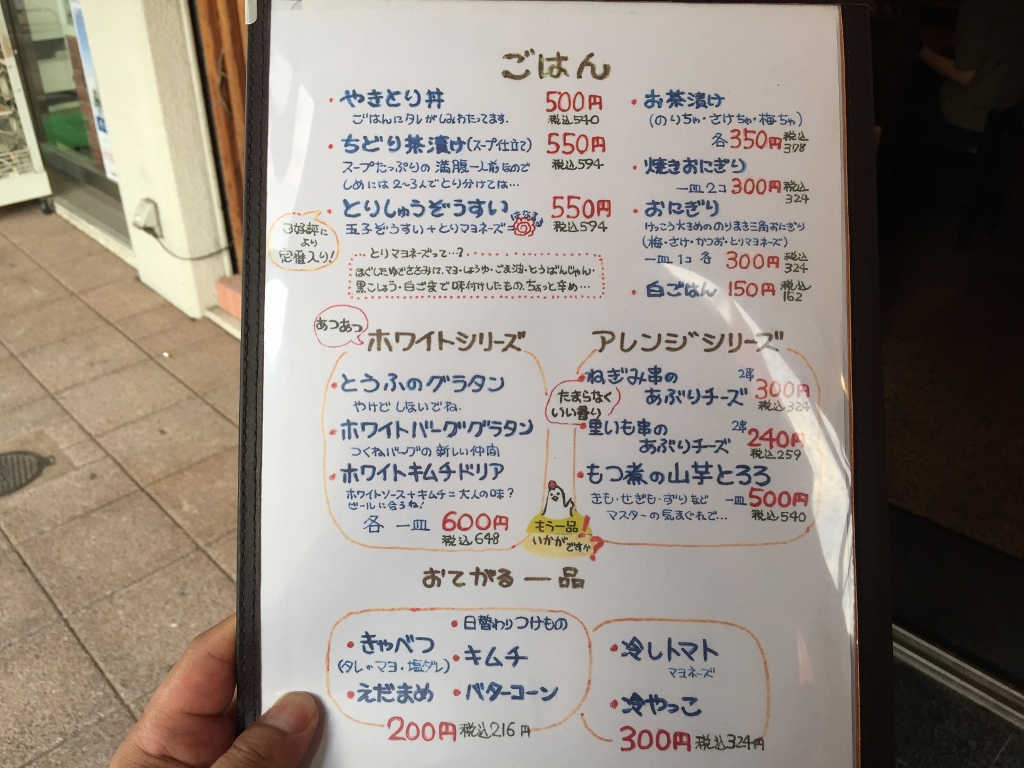 ごはん
・やきとり丼 500円
ごはんにタレがしみわたってます。 税込540
・ちどり茶漬け(スープ仕立て) 550円
税込594
スープたっぷりの満腹一人前なので
しめには2〜3人でとり分けては…
・とりしゅうぞうすい 550円
玉子ぞうすい+とりマヨネーズ= はなまる 税込594
好評に
より
定番入り!
とりマヨネーズって…?
ほぐしたゆでささみに、マヨ・しょうゆ・ごま油・とうばんじゃん・
黒こしょう・白ごまで味付けしたもの。ちょっと辛め…
・お茶漬け
(のりちゃ・さけちゃ・梅ちゃ)
各350円 税込378
・焼きおにぎり
一皿2コ 300円 税込324
・おにぎり
けっこう大きめののりまき三角おにぎり
(梅・さけ・かつお・とりマヨネーズ)
一皿1コ 各 300円 税込324
・白ごはん 150円 税込162
あつあつ
ホワイトシリーズ
・とうふのグラタン
やけどしないでね。
・ホワイトバーググラタン
つくねバーグの新しい仲間
・ホワイトキムチドリア
ホワイトソース+キムチ=大人の味?
ビールに合うね!
各 一皿 600円
税込648
アレンジシリーズ
・ねぎみ串の 2串
あぶりチーズ 300円
税込324
たまらなく
いい香り
・里いも串の 2串
あぶりチーズ 240円
税込259
・もつ煮の山芋とろろ
きも・せぎも・ずりなど 一皿500円
マスターの気まぐれで… 税込540
もう一品!
いかがですか?
おてがる一品
・きゃべつ
(タレ・マヨ・塩ダレ)
・えだまめ
・日替わりつけもの
・キムチ
・バターコーン
200円 税込216円
・冷しトマト
マヨネーズ
・冷やっこ
300円 税込324円